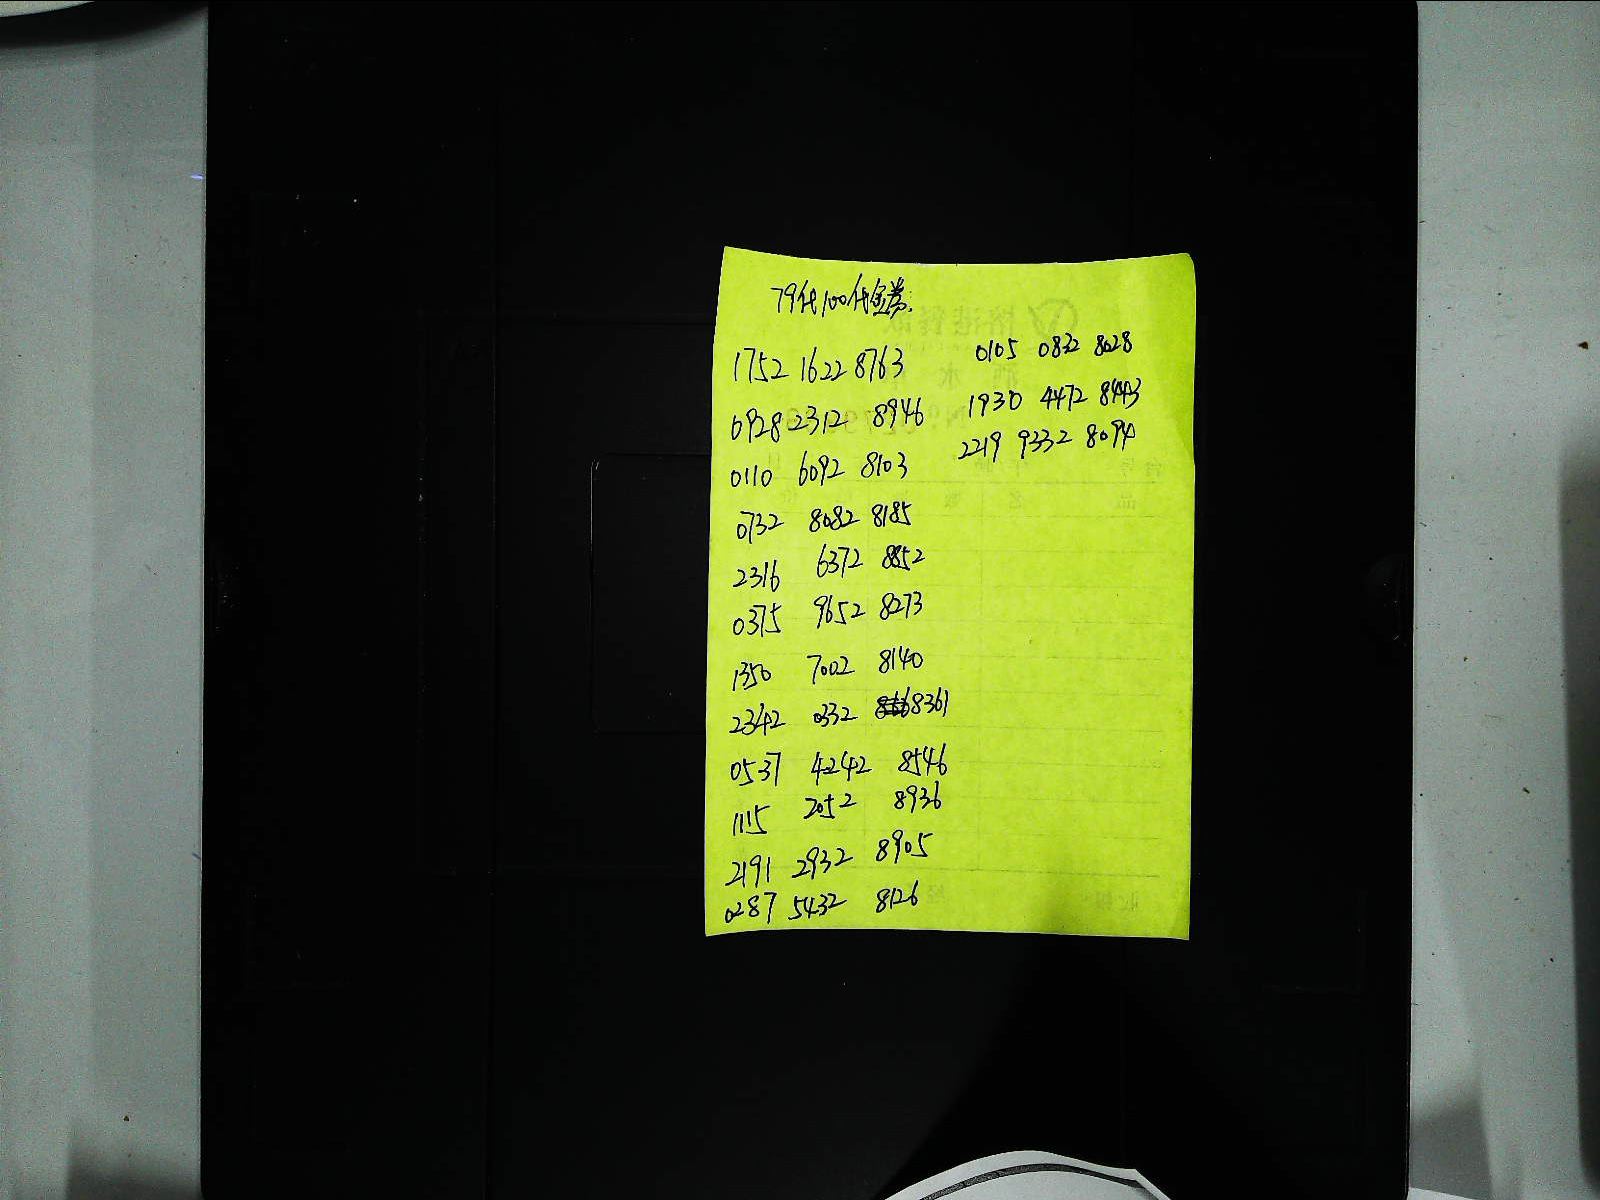 79代100代金券:
1752 1622 8763
0928 2312 8946
0110 6092 8103
0732 8082 8185
2316 6372 8852
0375 9652 8273
1350 7002 8140
2342 0332 8361
0537 4242 8546
1115 2052 8936
2191 2932 8905
0287 5432 8126
0105 0832 8028
1930 4472 8443
2219 9332 8094